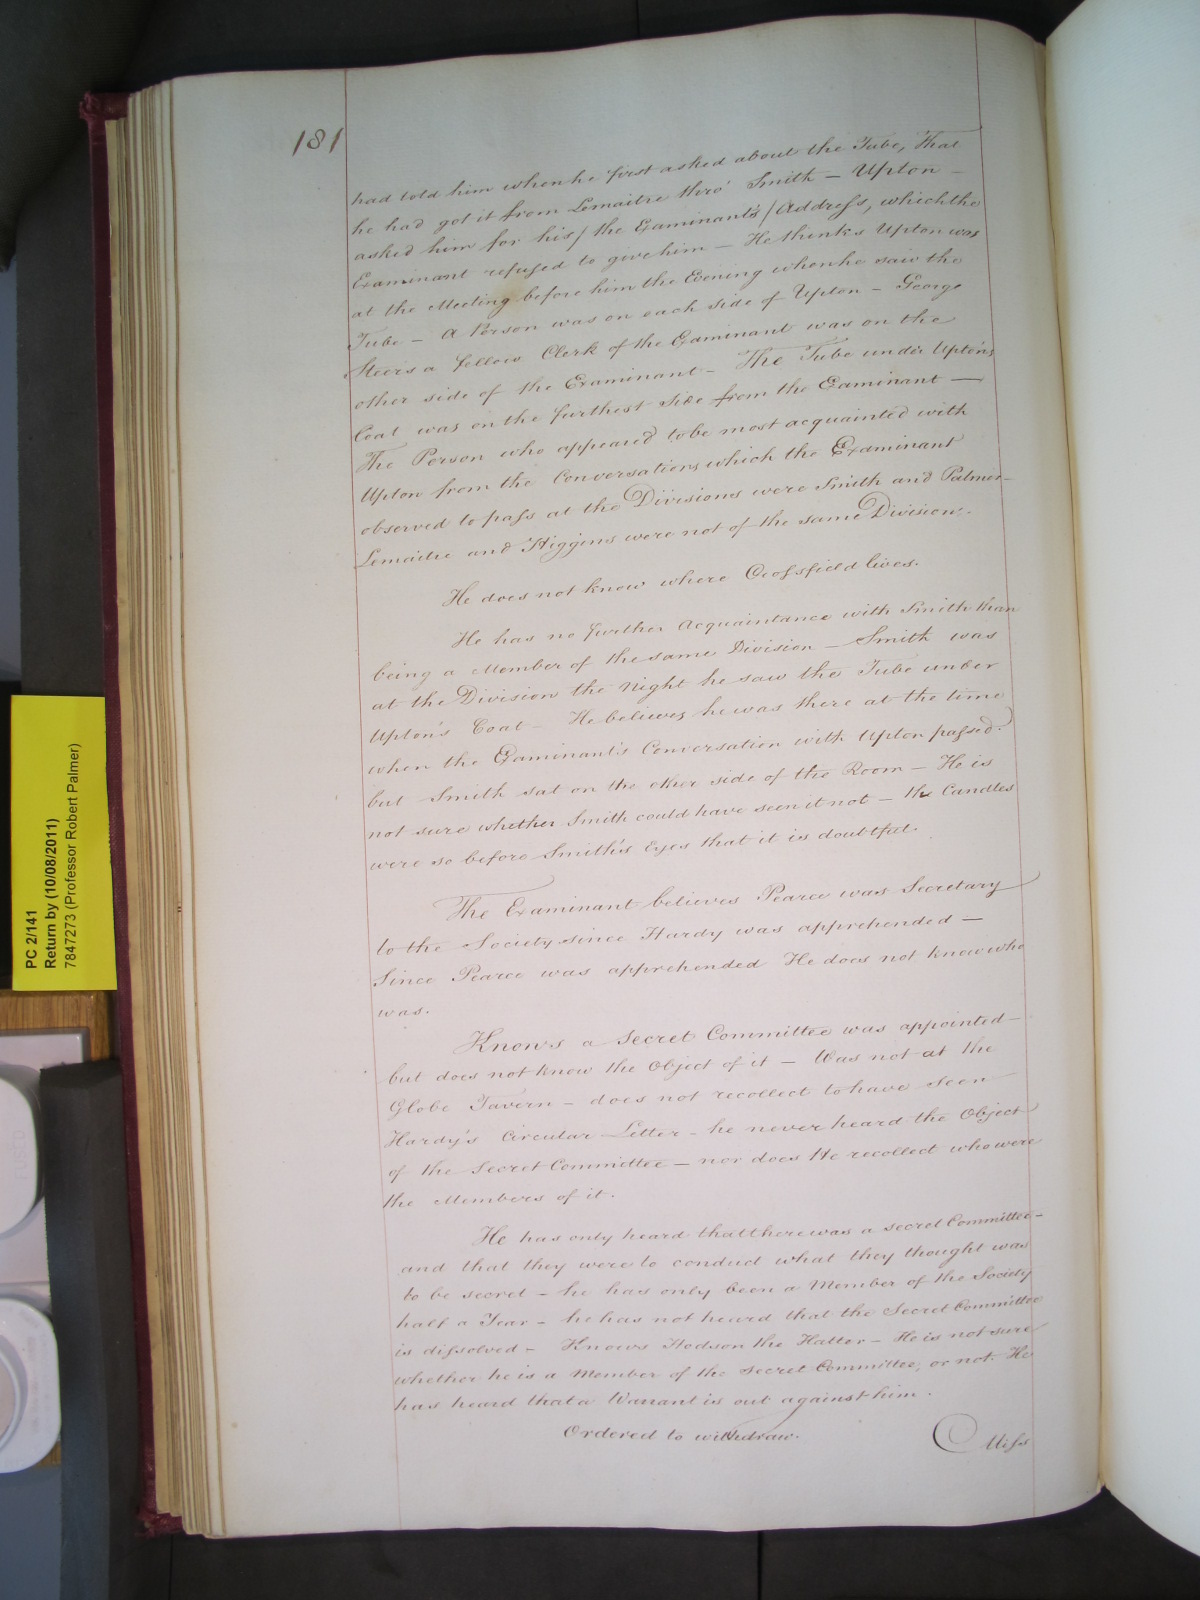 181
had told him when he first asked about the Tube, That
he had got it from Lemaitre thro' Smith – Upton –
asked him for his / the Examinant's / Address, which the
Examinant refused to give him – He thinks Upton was
at the Meeting before him the Evening when he saw the
Tube – A Person was on each side of Upton – George
Steers a fellow Clerk of the Examinant was on the
other side of the Examinant – The Tube under Upton's
Coat was on the furthest Side from the Examinant —
The Person who appeared to be most acquainted with
Upton from the Conversations which the Examinant
observed to pass at the Divisions were Smith and Palmer –
Lemaitre and Higgins were not of the same Division.
He does not know where Crossfield lives.
He has no further Acquaintance with Smith than
being a Member of the same Division – Smith was
at the Division the Night he saw the Tube under
Upton's Coat – He believes he was there at the time
when the Examinant's Conversation with Upton passed.
but Smith sat on the other side of the Room – He is
not sure whether Smith could have seen it not – the Candles
were so before Smith's Eyes that it is doubtful.
The Examinant believes Pearce was Secretary
to the Society since Hardy was apprehended —
Since Pearce was apprehended He does not know who
was.
Knows a Secret Committee was appointed –
but does not know the Object of it – Was not at the
Globe Tavern – does not recollect to have seen
Hardy's Circular Letter – he never heard the Object
of the Secret Committee – nor does He recollect who were
the Members of it.
He has only heard that there was a secret Committee –
and that they were to conduct what they thought was
to be secret – he has only been a Member of the Society
half a Year – he has not heard that the Secret Committee
is dissolved – Knows Hodson the Hatter – He is not sure
whether he is a Member of the Secret Committee, or not. He
has heard that a Warrant is out against him.
Ordered to withdraw.
Miss
PC 2/141
Return by (10/08/2011)
7847273 (Professor Robert Palmer)